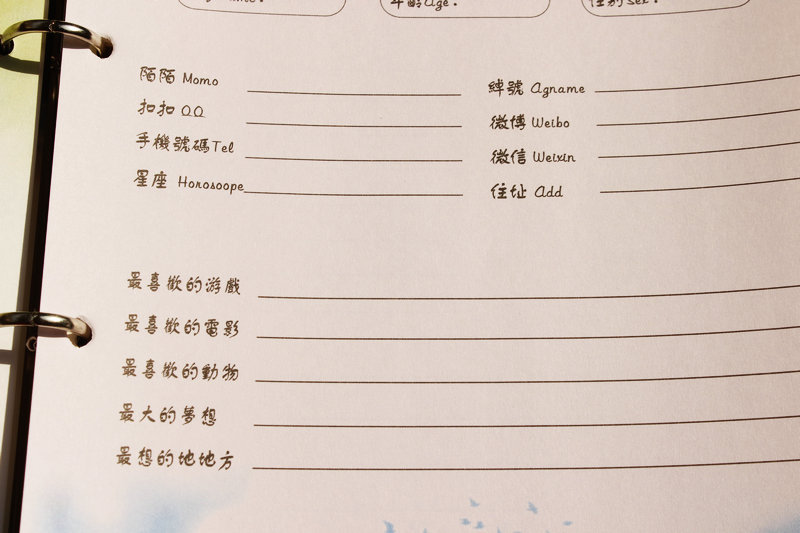 年齡Age: 性別Sex:
陌陌 Momo 綽號 Agname
扣扣 QQ 微博 Weibo
手機號碼Tel 微信 Weixin
星座 Horosoope 住址 Add
最喜歡的游戲
最喜歡的電影
最喜歡的動物
最大的夢想
最想的地地方